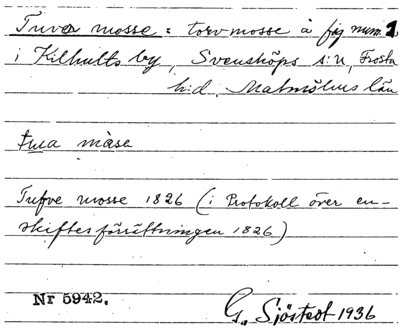 Tuva mosse : torvmosse å jäg num. 1
i Kilhults by, Svensköps s:n, Frosta
h:d, Malmöhus län
tuva måse
Tufve mosse 1826 (i Protokoll över en-
skiftesförrättningen 1826)
Nr 5942.
G. Sjöstedt 1936